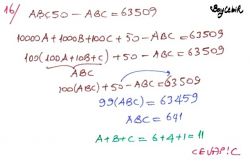 16/ ABC50 - ABC = 63509
BayÇalmık
10000A + 1000B + 100C + 50 - ABC = 63509
100(100A + 10B + C) + 50 - ABC = 63509
ABC
100(ABC) + 50 - ABC = 63509
99(ABC) = 63459
ABC = 641
A + B + C = 6 + 4 + 1 = 11
CEVAP: C